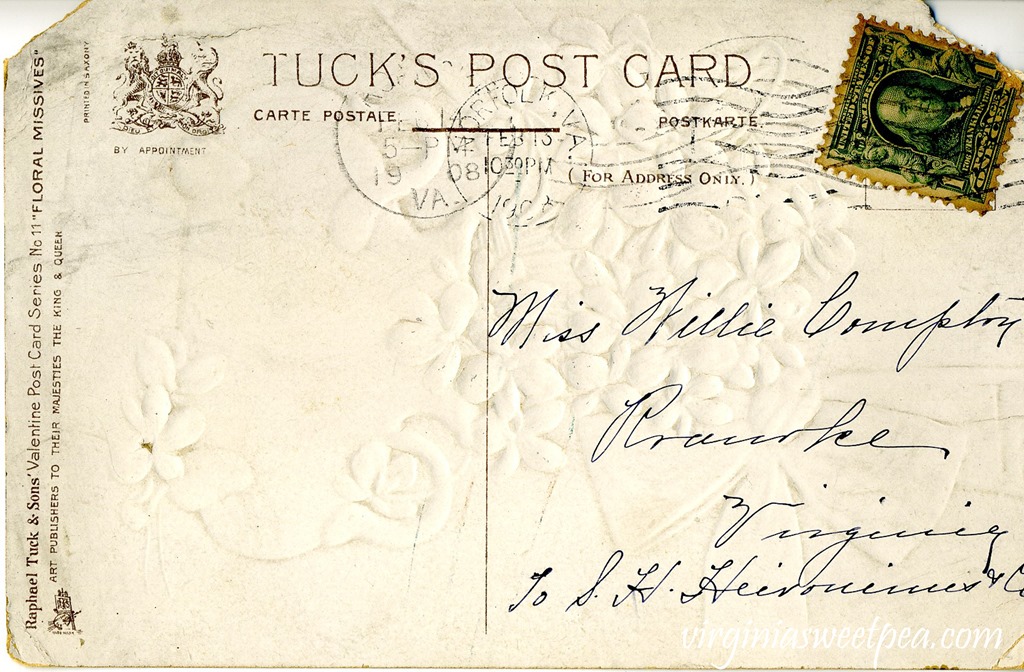 TUCK'S POST CARD
CARTE POSTALE.
POSTKARTE.
(FOR ADDRESS ONLY.)
BY APPOINTMENT
PRINTED IN SAXONY
Raphael Tuck & Sons' Valentine Post Card Series No 11 "FLORAL MISSIVES"
ART PUBLISHERS TO THEIR MAJESTIES THE KING & QUEEN
5-PM
19 08
VA.
NORFOLK, VA.
FEB 13
1030PM
1
1
Miss Willie Compton
Roanoke
Virginia
To S. H. Heironimus & Co
virginiasweetpea.com